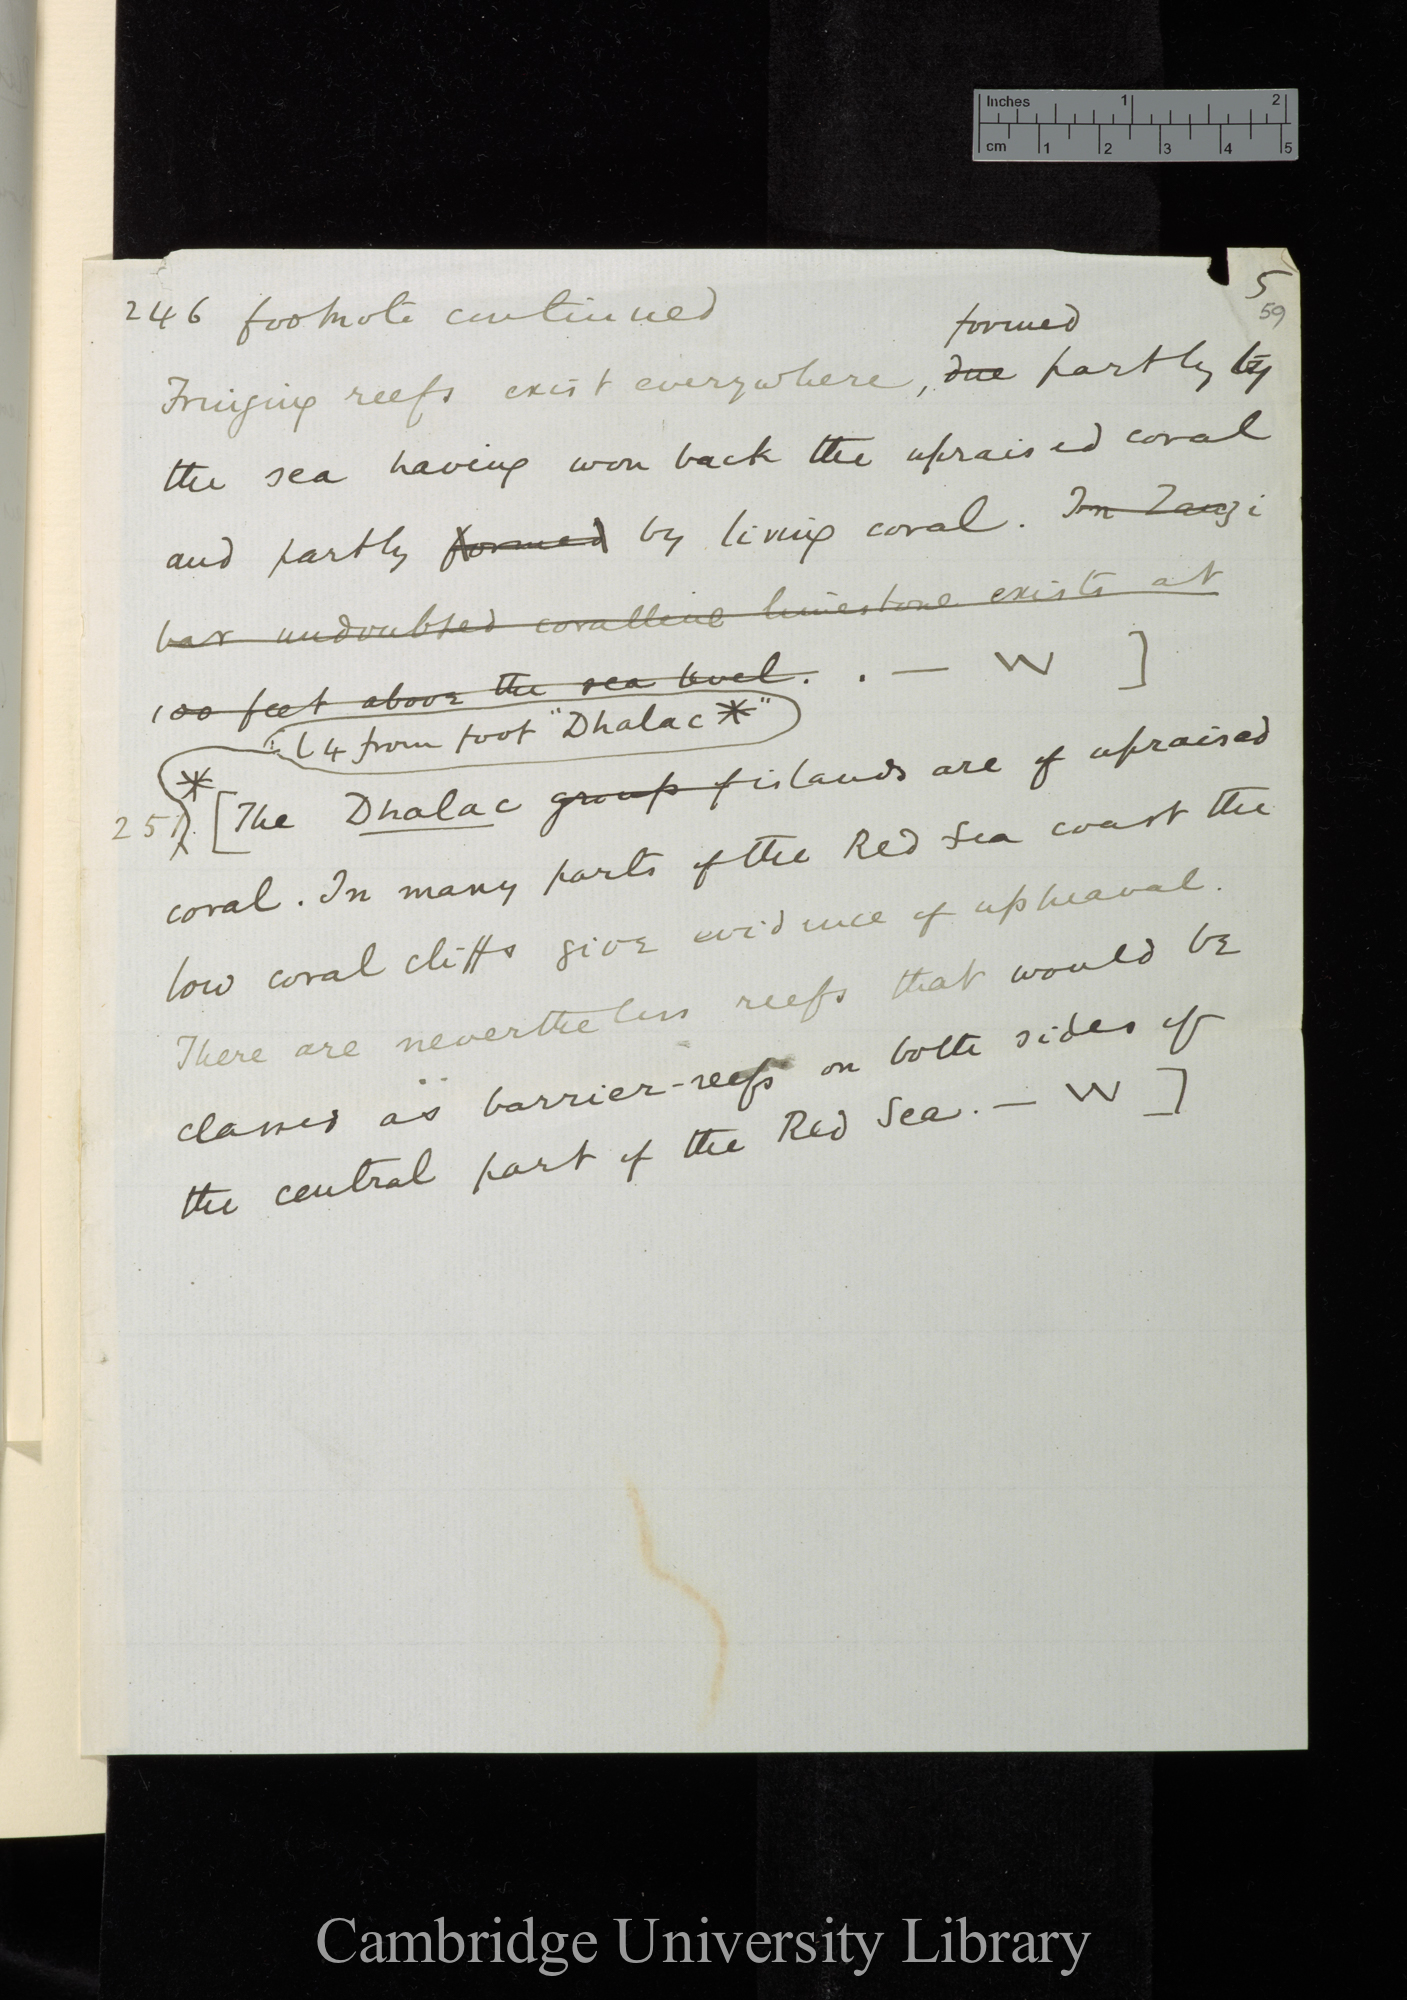 Inches 1 2
cm 1 2 3 4 5
5
59
246 footnote continued
formed
Fringing reefs exist everywhere, due partly by
the sea having won back the upraised coral
and partly formed by living coral. In Zanzi
bar undoubted coralline limestone exists at
100 feet above the sea level. . — W ]
l 4 from foot "Dhalac *"
*
251 [The Dhalac group of islands are of upraised
coral. In many parts of the Red Sea coast the
low coral cliffs give evidence of upheaval.
There are nevertheless reefs that would be
classed as barrier-reefs on both sides of
the central part of the Red Sea. — W ]
Cambridge University Library